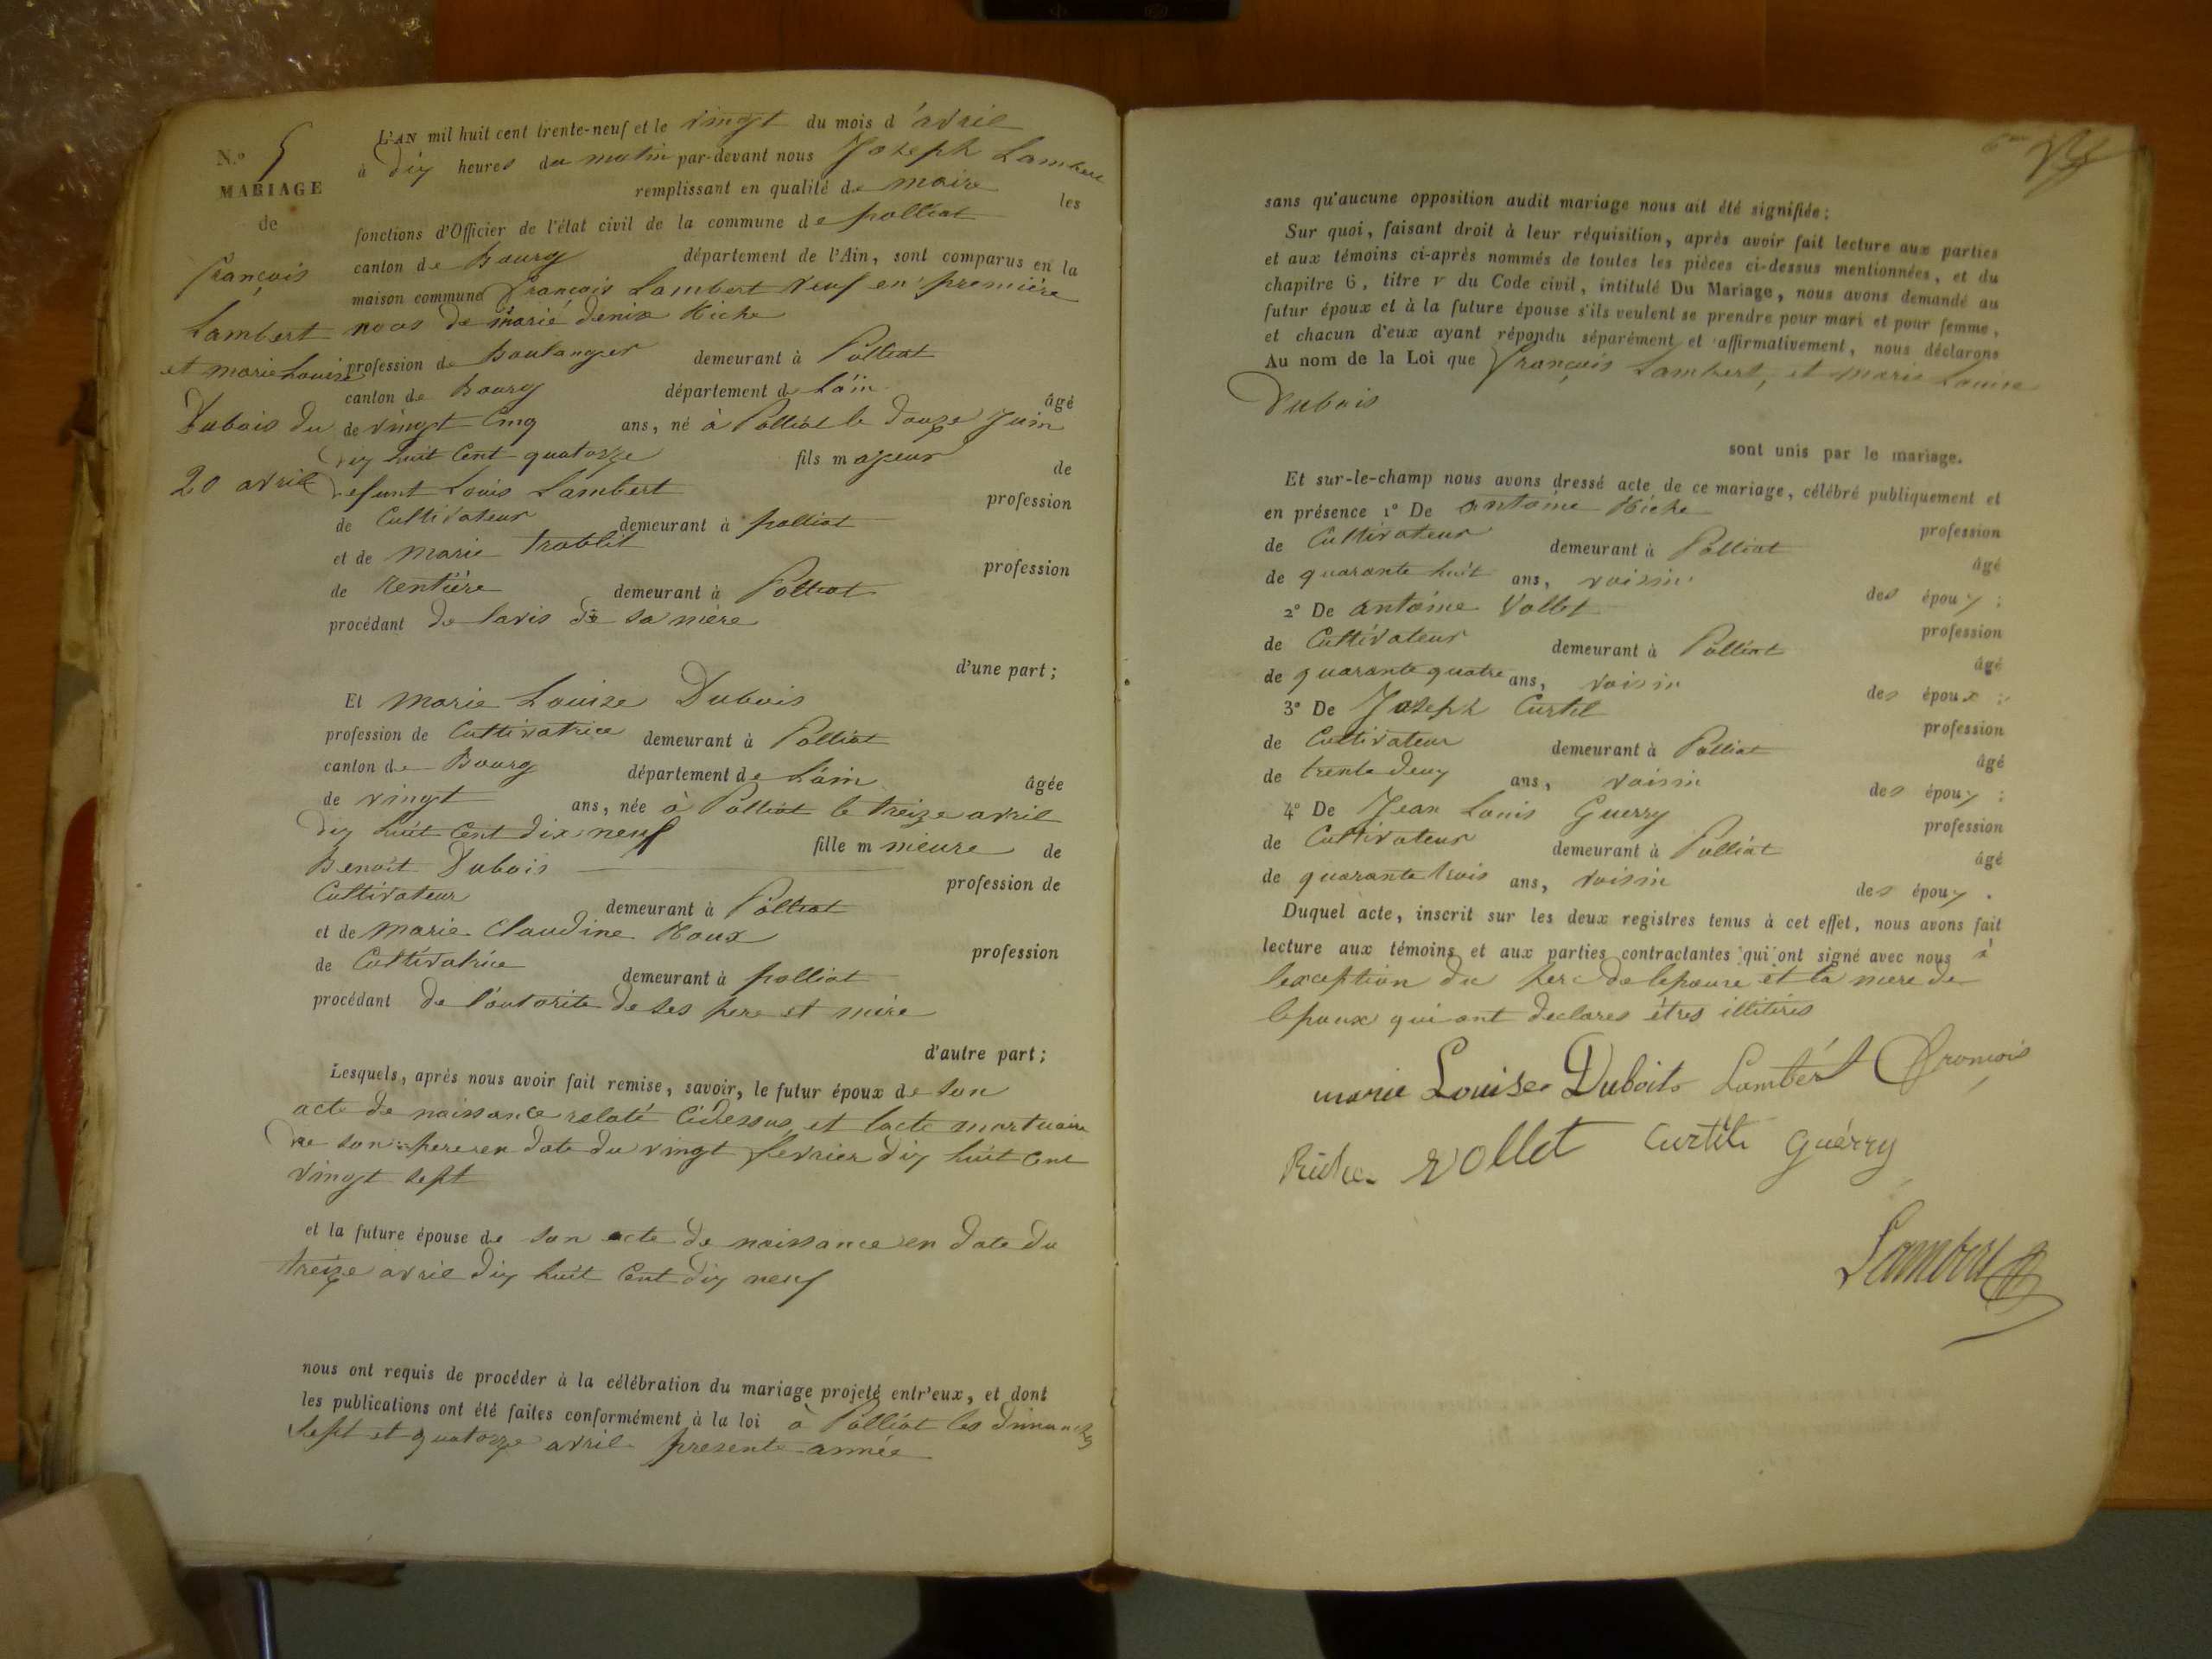 N.º 5
MARIAGE
de
François
Lambert
et marie Louise
Dubois du
20 avril
L'AN mil huit cent trente-neuf et le vingt du mois d'avril
à dix heures du matin par-devant nous Joseph Lambert
remplissant en qualité de maire les
fonctions d'Officier de l'état civil de la commune de polliat
canton de Bourg département de l'Ain, sont comparus en la
maison commune François Lambert veuf en première
noces de marie denise Riche
profession de Boulanger demeurant à Polliat
canton de Bourg département de Lain âgé
de vingt Cinq ans, né à Polliat le douze Juin
dix huit Cent quatorze fils majeur de
defunt Louis Lambert profession
de Cultivateur demeurant à polliat
et de marie trablit profession
de rentière demeurant à Polliat
procédant de lavis de sa mère
d'une part;
Et marie Louise Dubois
profession de Cultivatrice demeurant à Polliat
canton de Bourg département de Lain âgée
de vingt ans, née à Polliat le treize avril
dix huit Cent dix neuf fille mmieure de
Benoit Dubois profession de
Cultivateur demeurant à Polliat
et de marie Claudine Roux profession
de Cultivatrice demeurant à polliat
procédant de l'autorite de ses pere et mère
d'autre part;
Lesquels, après nous avoir fait remise, savoir, le futur époux de son
acte de naissance relaté Cidessus et lacte mortuaire
de son pere en date du vingt fevrier dix huit Cent
vingt sept
et la future épouse de son acte de naissance en date du
treize avril dix huit Cent dix neuf
nous ont requis de procéder à la célébration du mariage projeté entr'eux, et dont
les publications ont été faites conformément à la loi à Polliat les dimanches
sept et quatorze avril presente année
sans qu'aucune opposition audit mariage nous ait été signifiée;
Sur quoi, faisant droit à leur réquisition, après avoir fait lecture aux parties
et aux témoins ci-après nommés de toutes les pièces ci-dessus mentionnées, et du
chapitre 6, titre v du Code civil, intitulé Du Mariage, nous avons demandé au
futur époux et à la future épouse s'ils veulent se prendre pour mari et pour femme,
et chacun d'eux ayant répondu séparément et affirmativement, nous déclarons
Au nom de la Loi que François Lambert, et marie Louise
Dubois
sont unis par le mariage.
Et sur-le-champ nous avons dressé acte de ce mariage, célébré publiquement et
en présence 1º De antoine Riche profession
de Cultivateur demeurant à Polliat âgé
de quarante huit ans, voisin des époux;
2º De antoine Vollet profession
de Cultivateur demeurant à Polliat âgé
de quarante quatre ans, voisin des époux;
3º De Joseph Curtil profession
de Cultivateur demeurant à Polliat âgé
de trente deux ans, voisin des époux;
4º De Jean Louis Guerry profession
de Cultivateur demeurant à Polliat âgé
de quarante trois ans, voisin des époux.
Duquel acte, inscrit sur les deux registres tenus à cet effet, nous avons fait
lecture aux témoins et aux parties contractantes qui ont signé avec nous à
lexception du pere de lepouse et la mere de
lepoux qui ont declares êtres illitérés
marie Louise Duboits Lambért François
Riche vollet Curtil guérry
Lambert